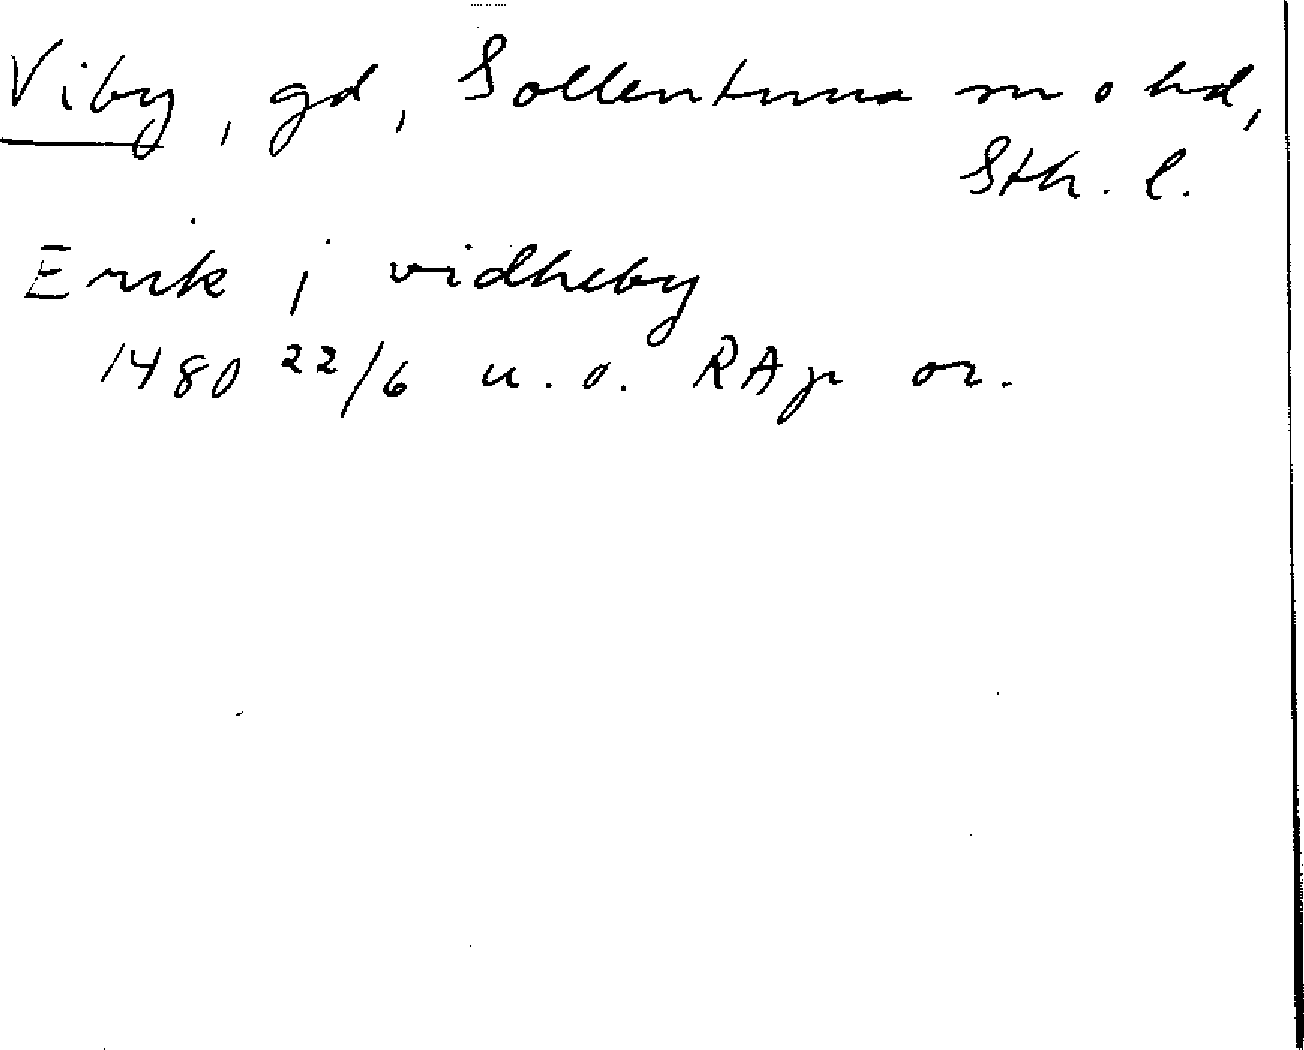 Viby, gd, Sollentuna sn o hd,
Sth. l.
Erik j vidheby
1480 22/6 u. o. RAp or.